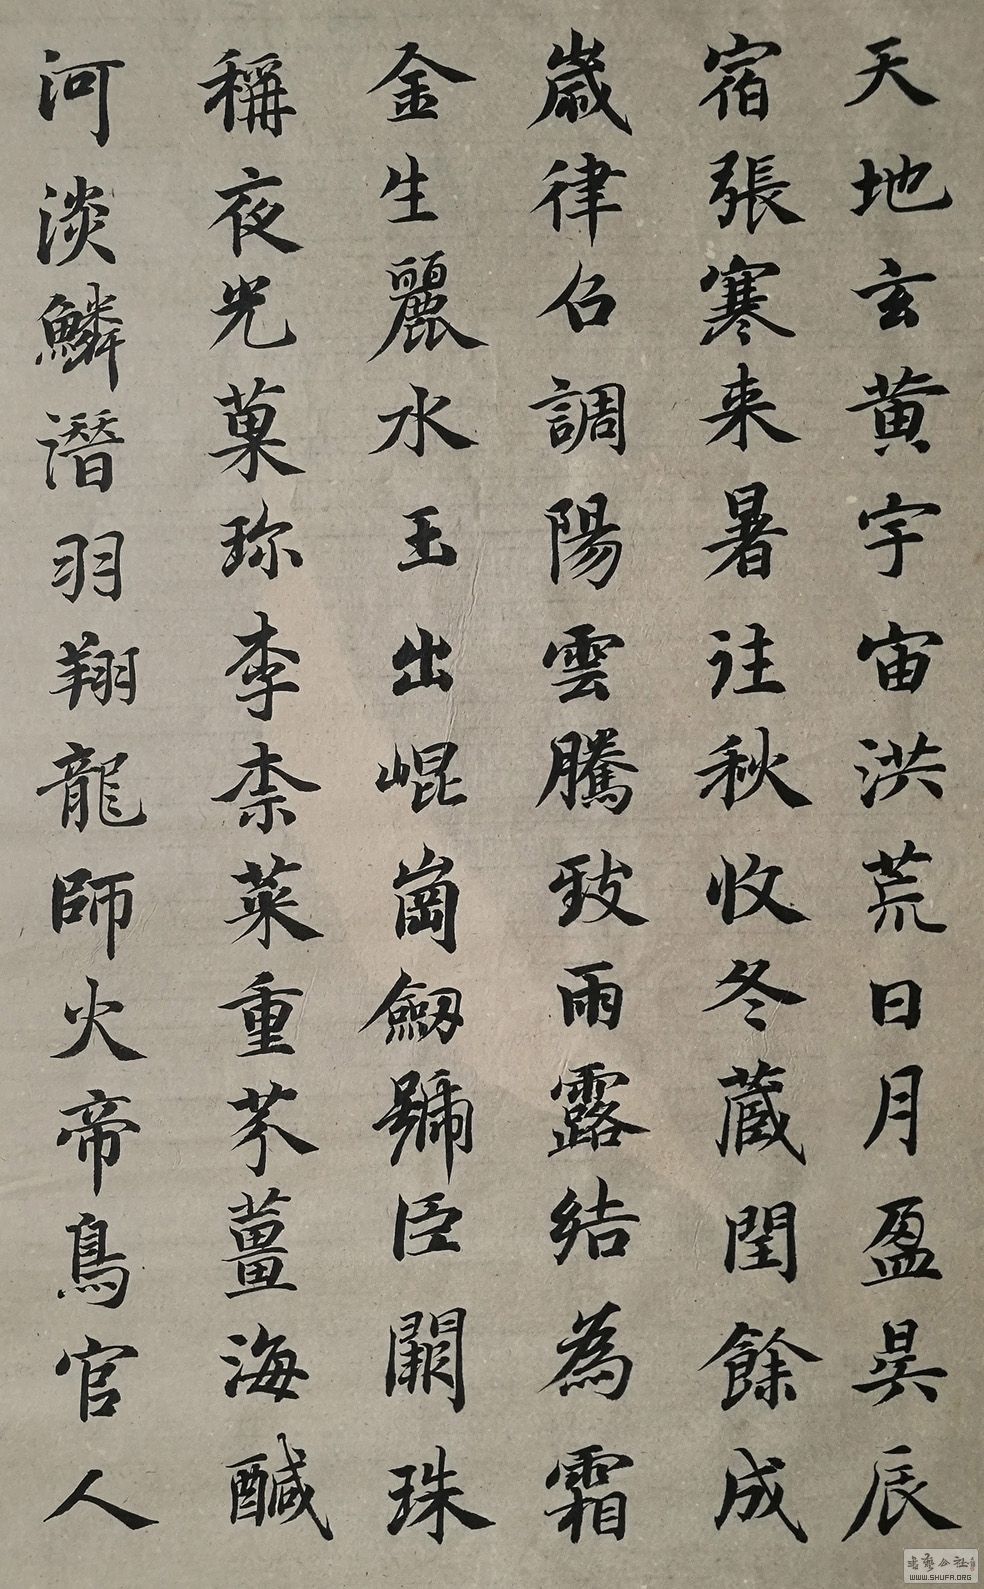 天地玄黄宇宙洪荒日月盈昃辰
宿張寒来暑往秋收冬蔵閏餘成
歳律召調陽雲騰致雨露結為霜
金生麗水玉出崐崗劒號巨闕珠
稱夜光菓珎李柰菜重芥薑海醎
河淡鱗潛羽翔龍師火帝鳥官人
書藝公社
WWW.SHUFA.ORG